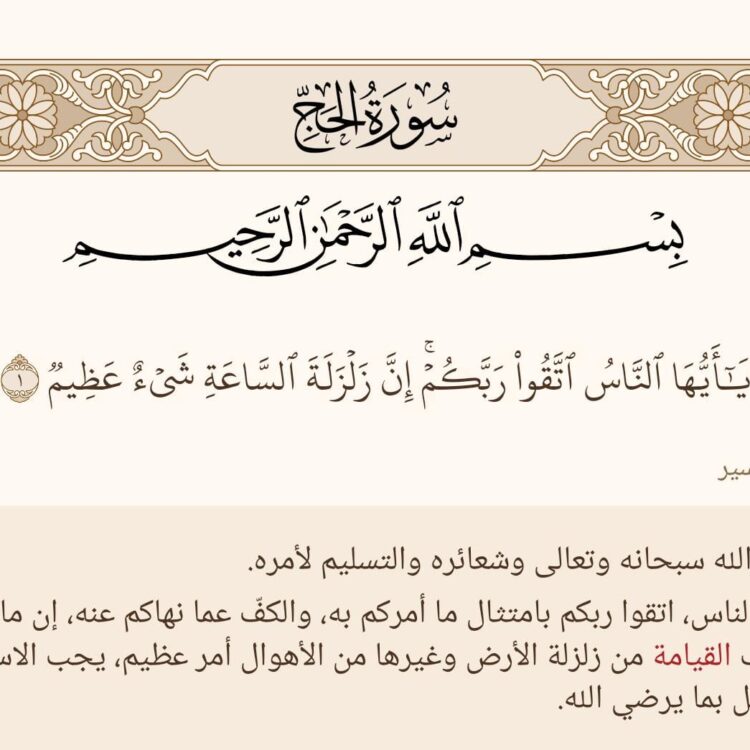 سُورَةُ الحَجِّ
بِسْمِ ٱللَّهِ ٱلرَّحْمَٰنِ ٱلرَّحِيمِ
يَٰٓأَيُّهَا ٱلنَّاسُ ٱتَّقُوا۟ رَبَّكُمْ ۚ إِنَّ زَلْزَلَةَ ٱلسَّاعَةِ شَىْءٌ عَظِيمٌ ١
الله سبحانه وتعالى وشعائره والتسليم لأمره.
لناس، اتقوا ربكم بامتثال ما أمركم به، والكفّ عما نهاكم عنه، إن ما
القيامة من زلزلة الأرض وغيرها من الأهوال أمر عظيم، يجب الاس
ل بما يرضي الله.